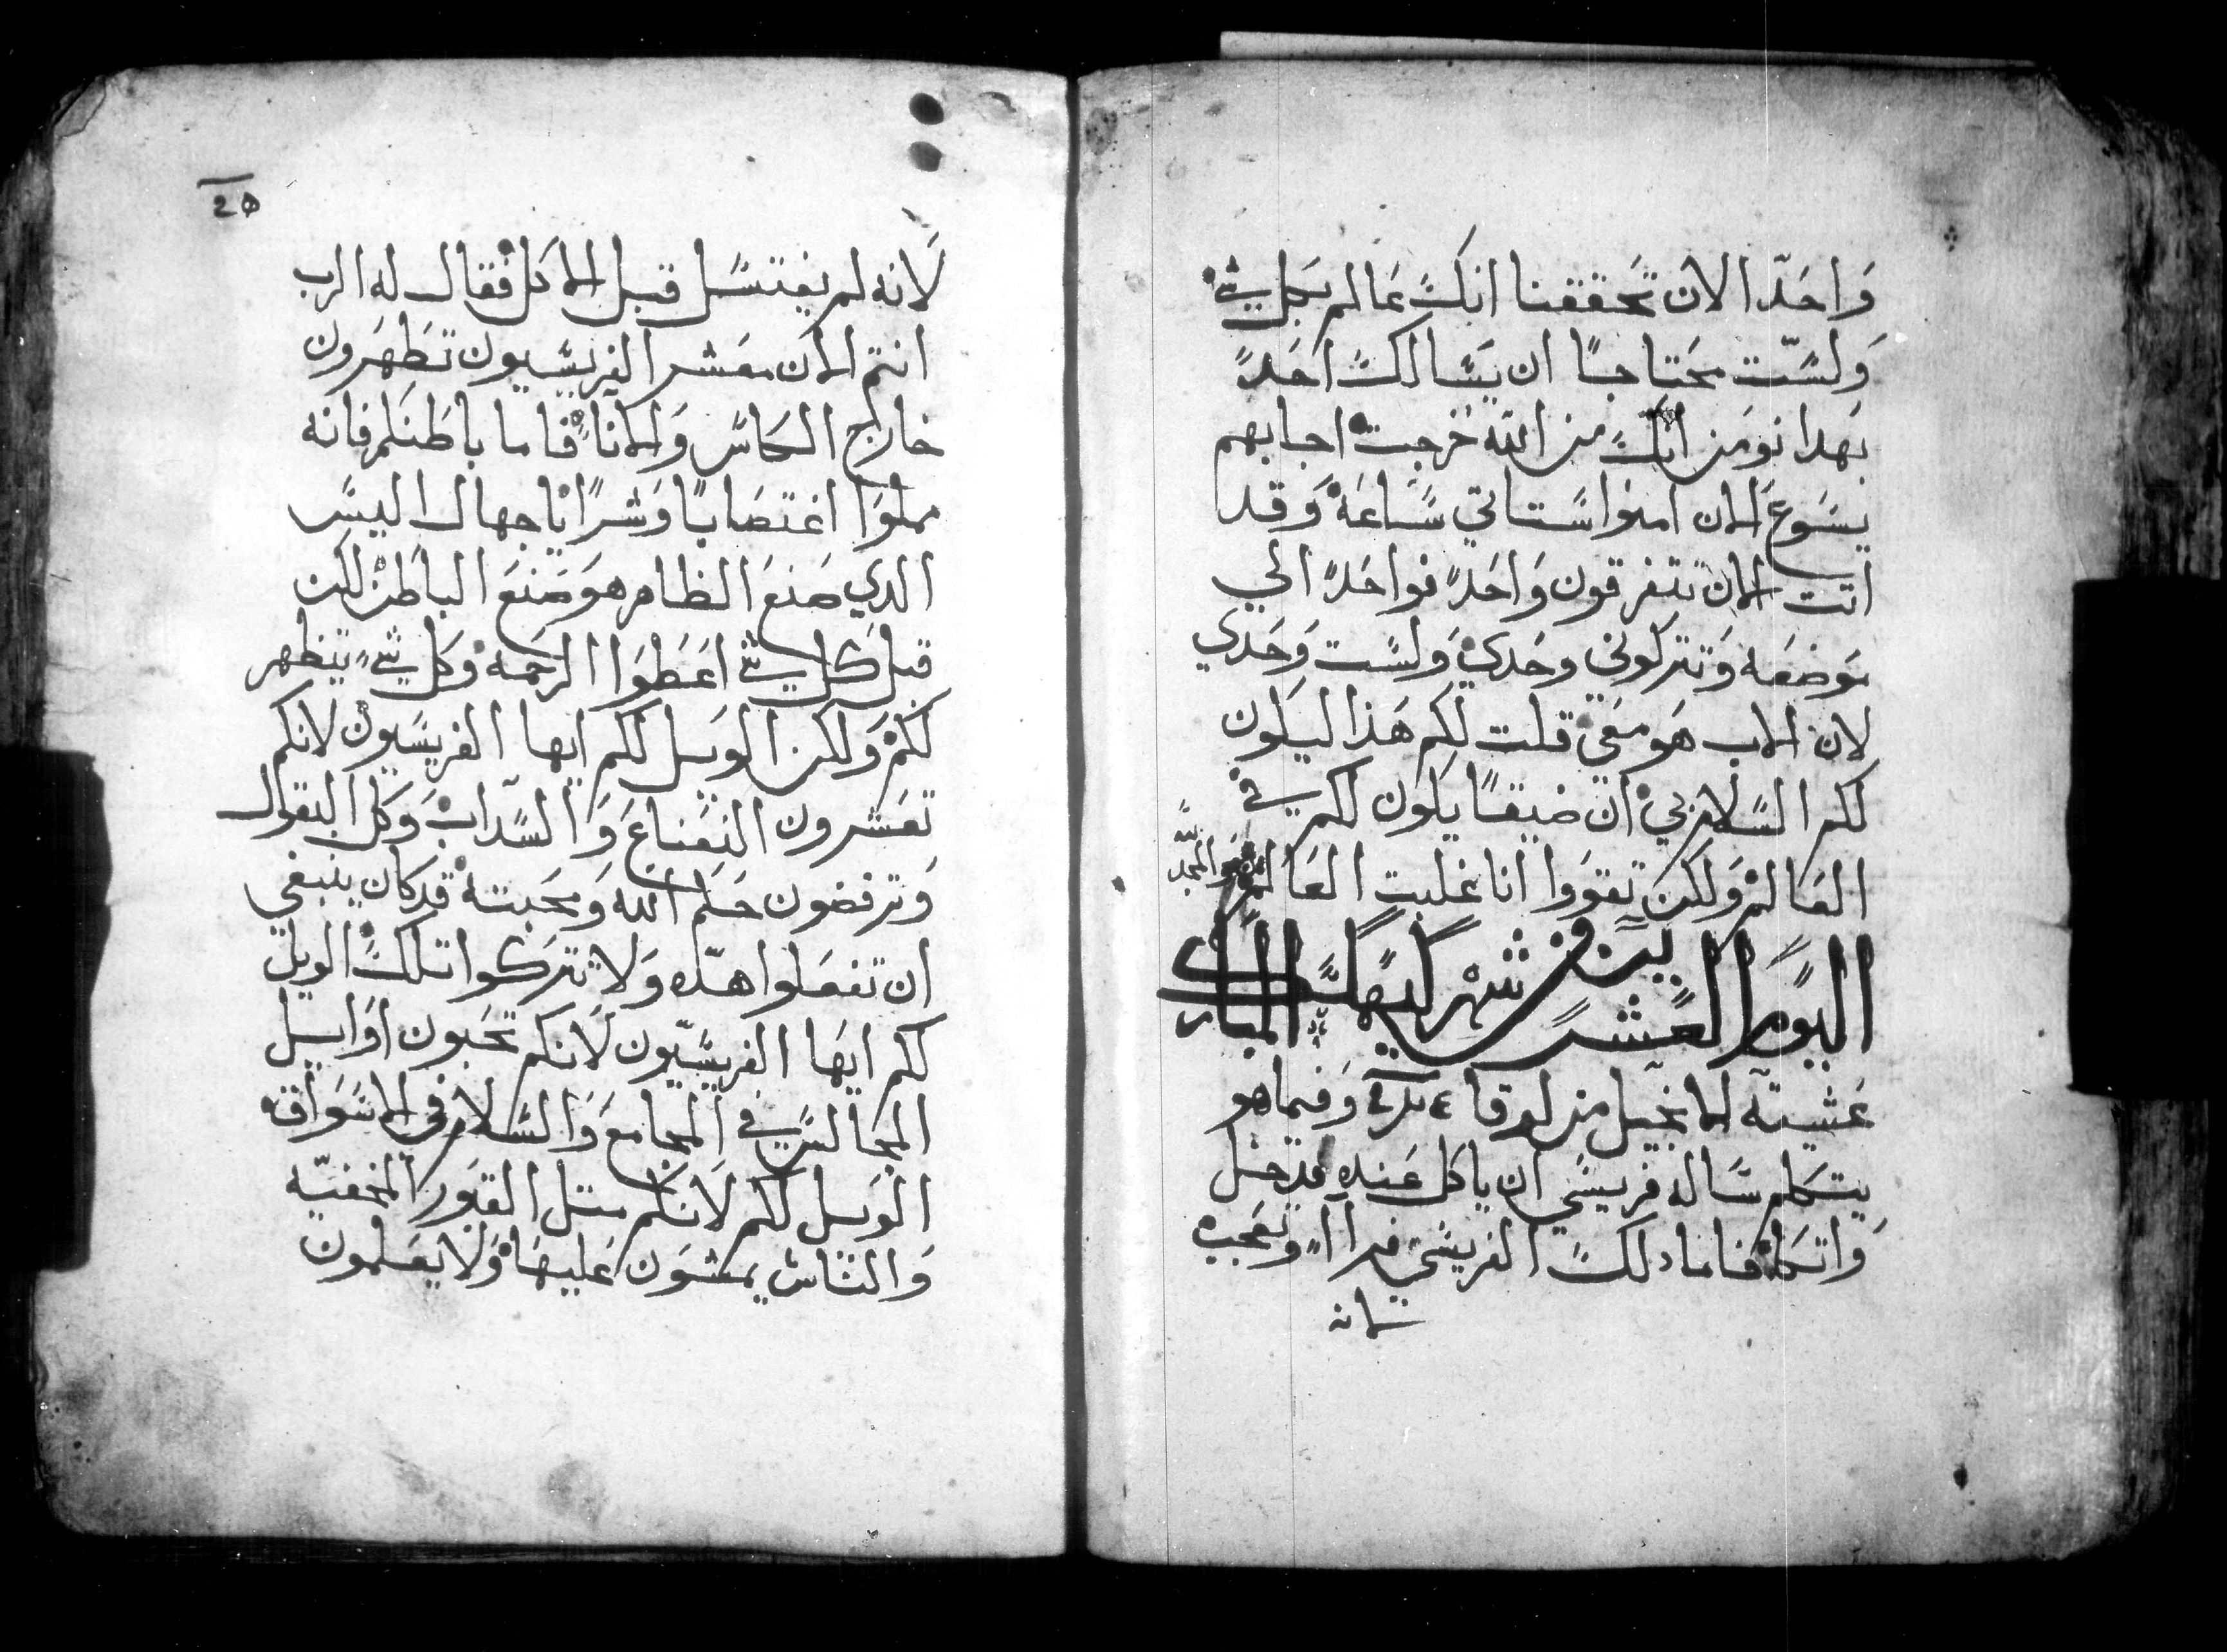 واحدا الان تحققنا انك عالم بكل شي
ولست محتاجا ان يسالك احدا
بهدا نومن انك من الله خرجت اجابهم
يسوع الان امنوا ستاتي ساعة وقد
اتت الان تتفرقون واحدا فواحدا الي
موضعه وتتركوني وحدي ولست وحدي
لان الاب هو معي قلت لكم هذا ليكون
لكم السلام بي ان ضيقا يكون لكم في
العالم ولكن تقووا انا غلبت العالم
والمجد
اليوم العشرين من شهر كيهك المبارك
عشيته الانجيل من لوقا وفيما هو
يتكلم ساله فريسي ان ياكل عنده فدخل
واتكا فاما دلك الفريسي فراا وتعجب
لانه
لانه لم يغتسل قبل الاكل فقال له الرب
انتم الان معشر الفريسيون تطهرون
خارج الكاس والانا فاما باطنكم فانه
مملوا اغتصابا وشرا يا جهال اليس
الدي صنع الظاهر هو صنع الباطن لكن
قبل كل شي اعطوا الرحمه وكل شي يتطهر
لكم ولكن الويل لكم ايها الفريسيون لانكم
تعشرون النعناع والسداب وكل البقول
وترفضون حكم الله ومحبته قد كان ينبغي
ان تفعلوا هده ولا تتركوا تلك الويل
لكم ايها الفريسيون لانكم تحبون اوايل
المجالس في المجامع والسلام في الاسواق
الويل لكم لانكم متل القبور المخفيه
والناس يمشون عليها ولا يعلمون